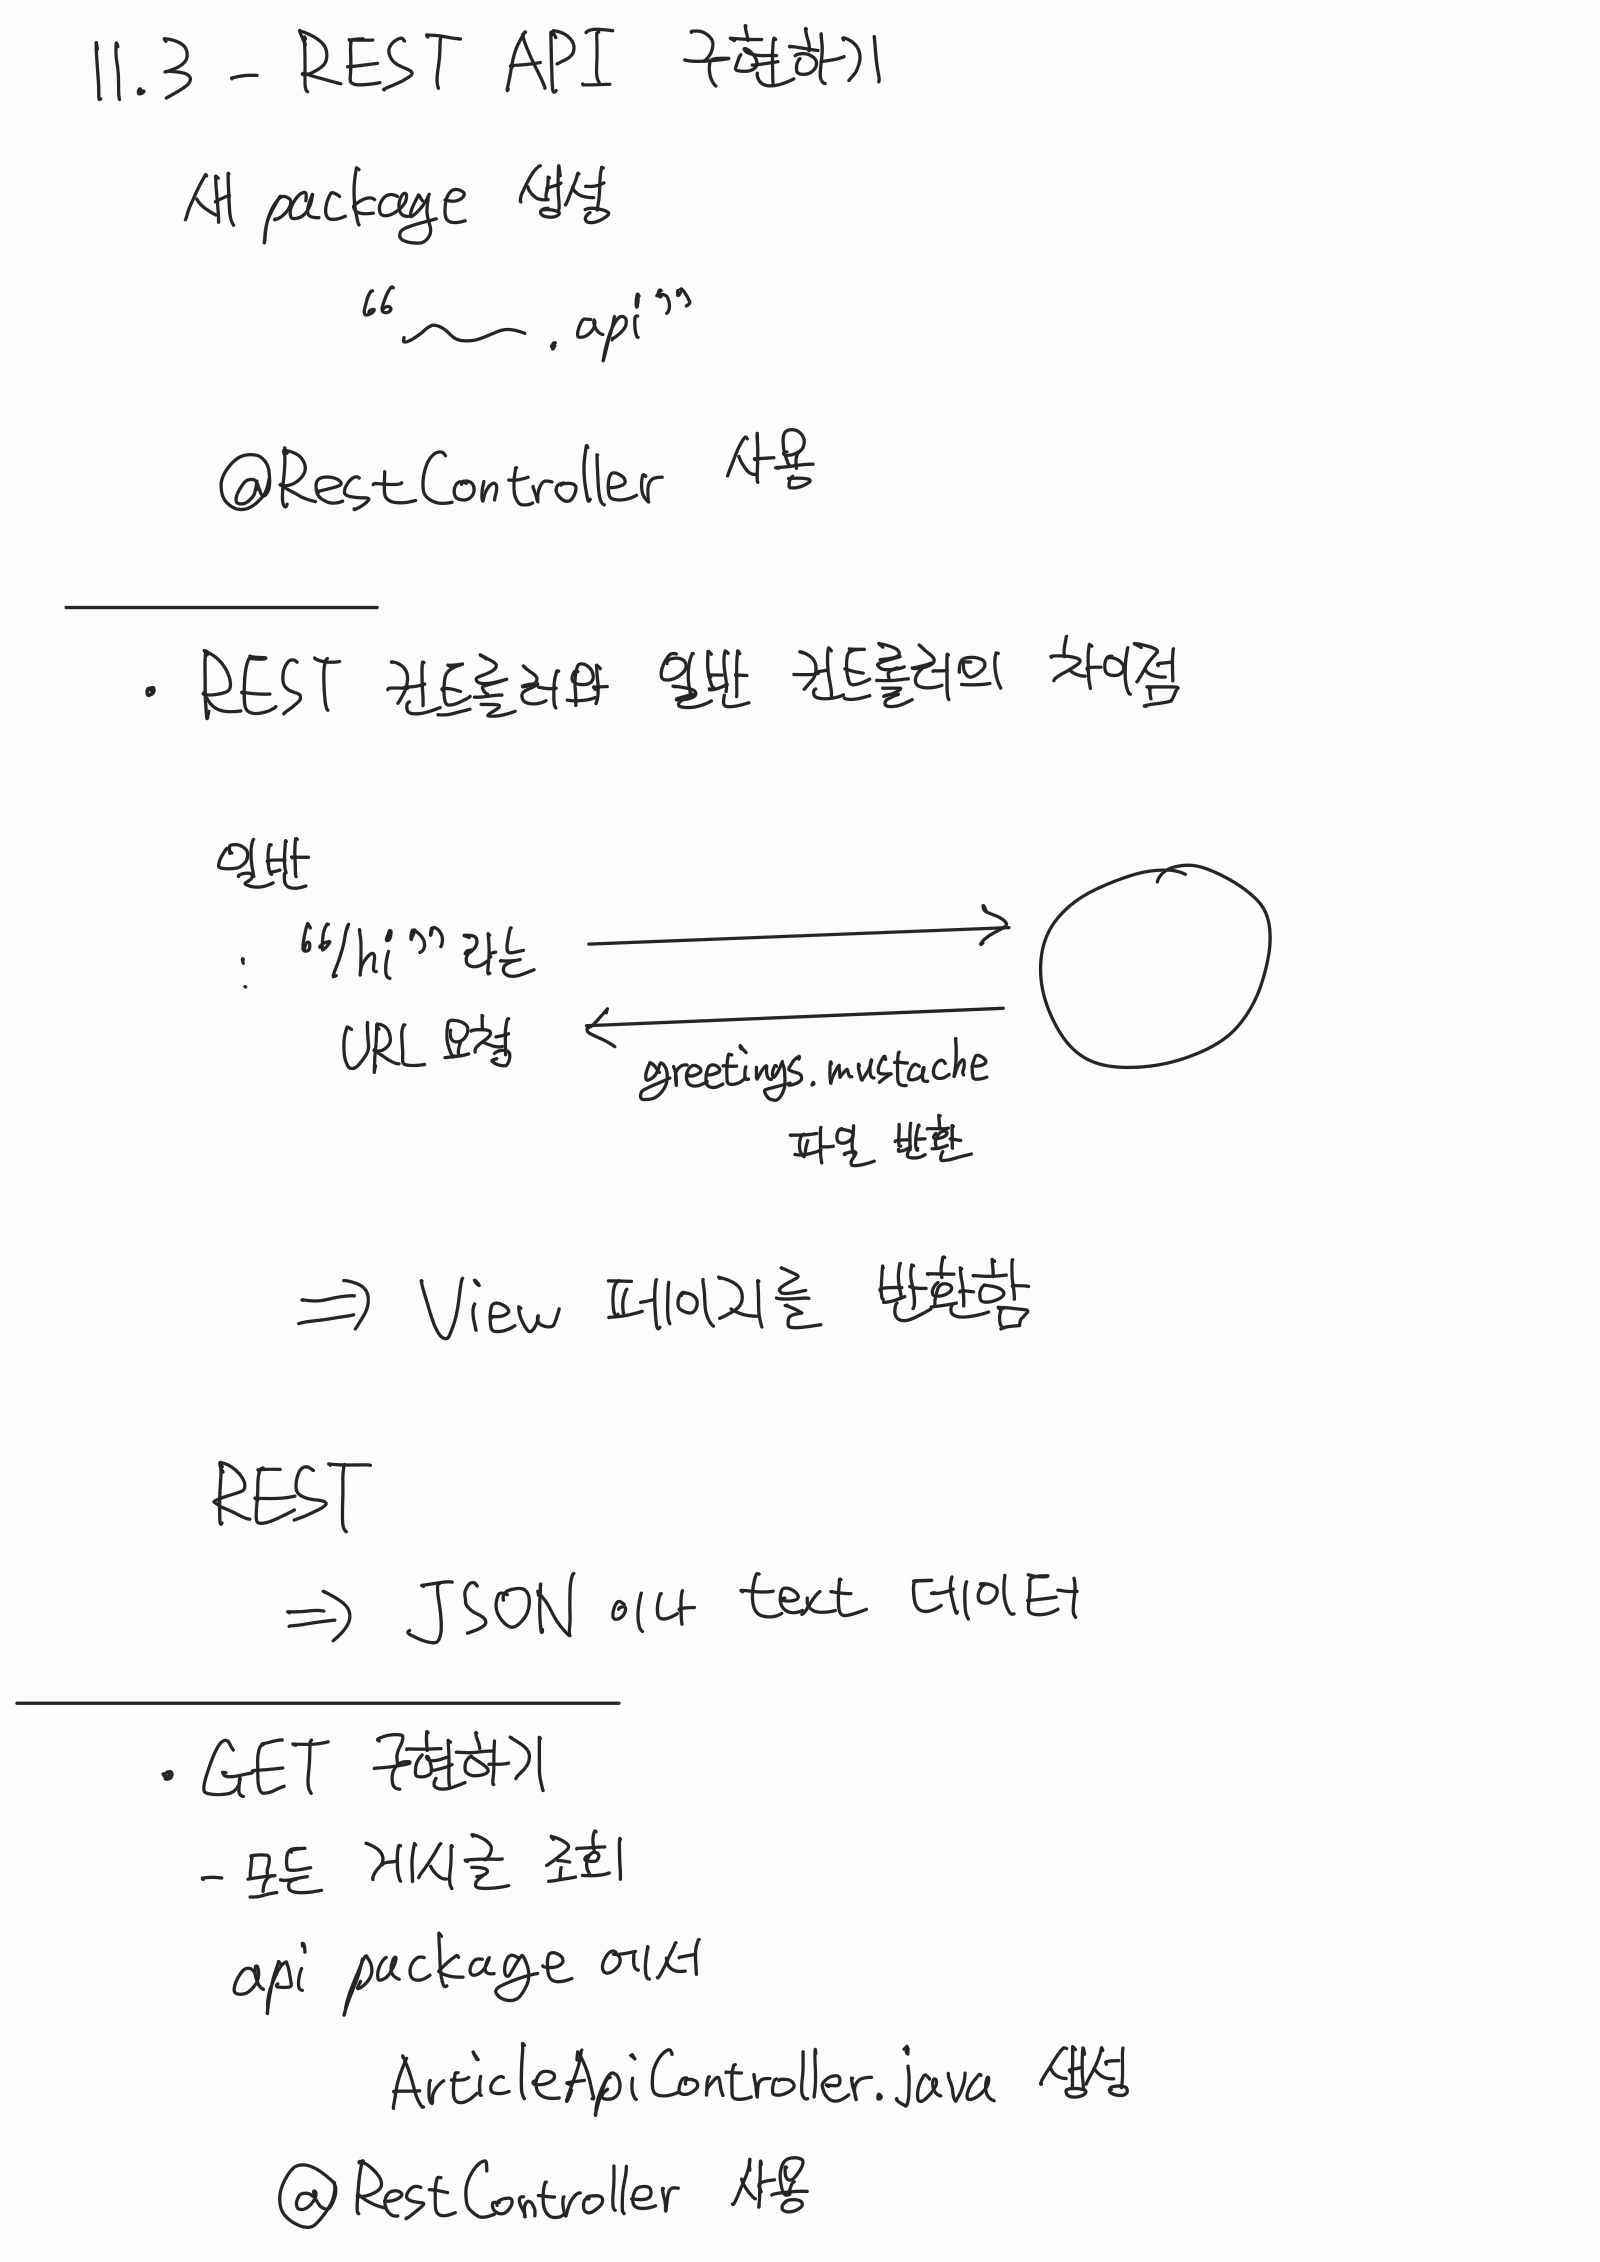 11.3 - REST API 구현하기
새 package 생성
“ ~ .api”
@RestController 사용
• REST 컨트롤러와 일반 컨트롤러의 차이점
일반
: “/hi” 라는
URL 요청
greetings.mustache
파일 반환
⇒ View 페이지를 반환함
REST
⇒ JSON 이나 text 데이터
• GET 구현하기
- 모든 게시글 조회
api package 에서
ArticleApiController.java 생성
@RestController 사용